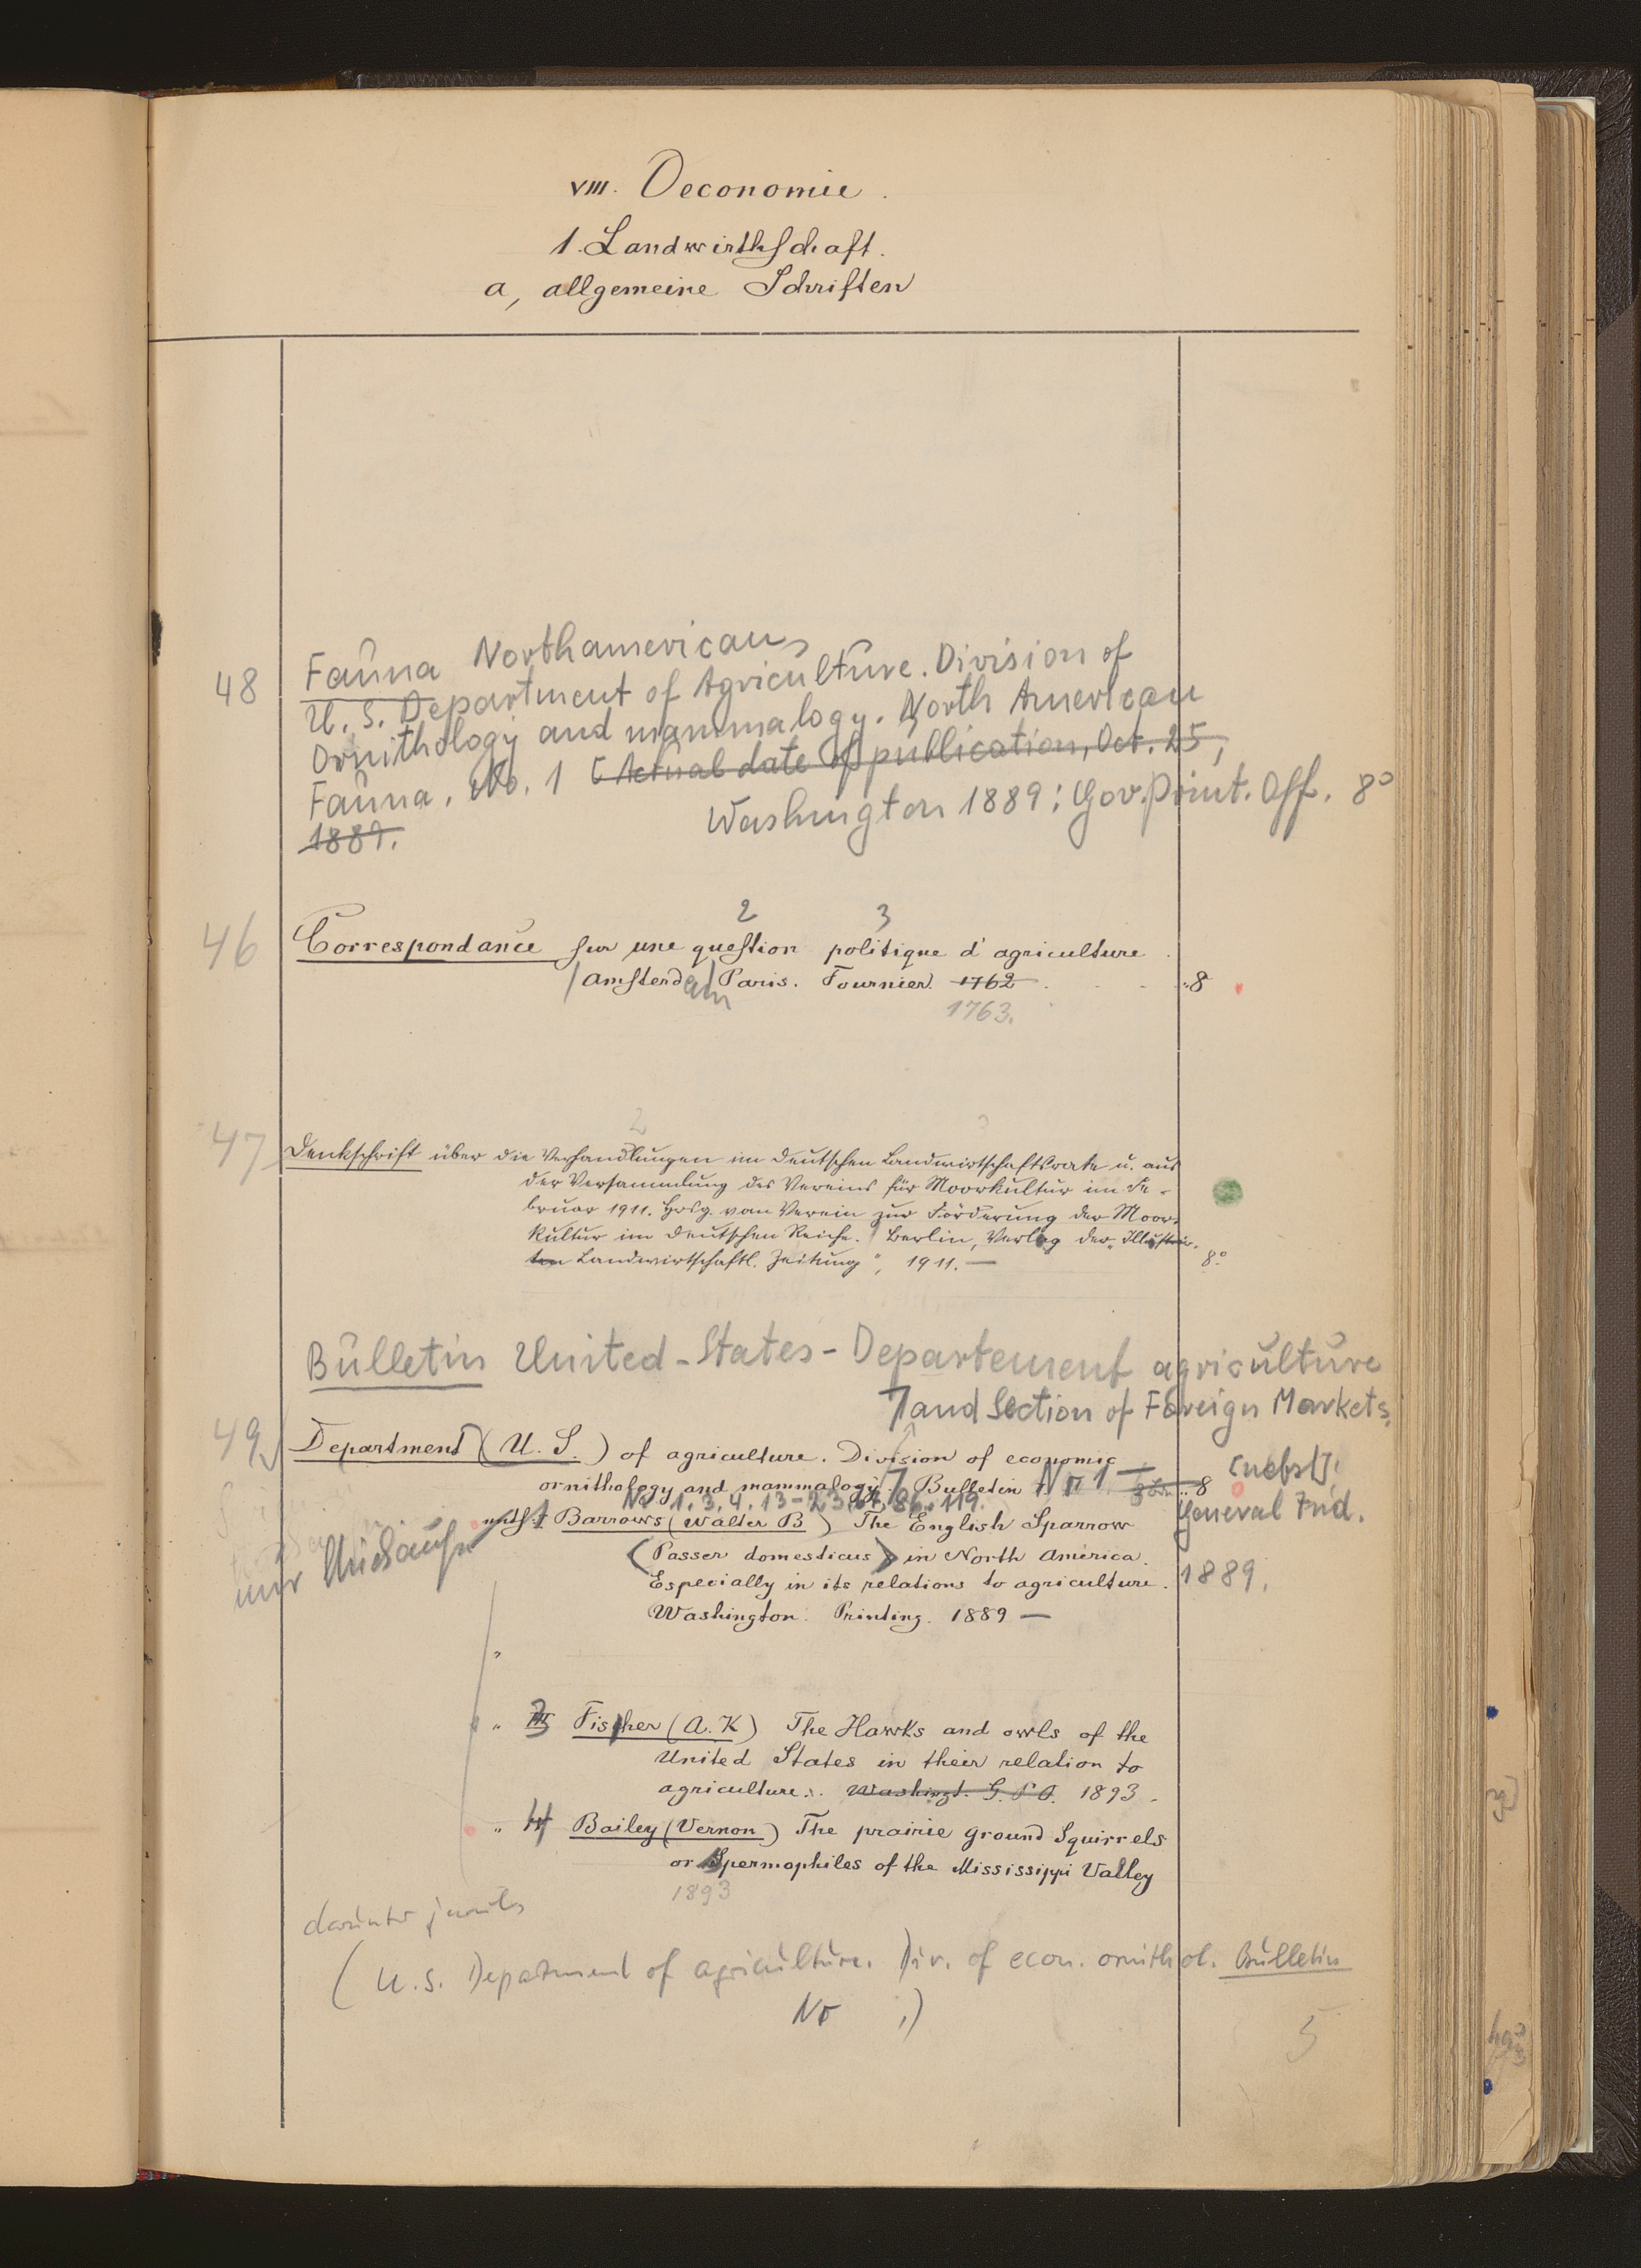 VIII. Oeconomie.
1. Landwirthschaft.
a, allgemeine Schriften
48 Fauna Northamerican
U. S. Department of Agriculture. Division of
Ornithology and mammalogy. North American
Fauna. No. 1 [Actual date of publication, Oct. 25,
1889.
Washington 1889: Gov. Print. Off. 8°
2 3
46 Correspondance sur une question politique d'agriculture
(Amsterdam) Paris. Fournier. 1762 8
1763.
2 3
47 Denkschrift über die Verhandlungen im Deutschen Landwirtschaftsrate u. aus
der Versammlung des Vereins für Moorkultur im Fe-
bruar 1911. Hrsg. vom Verein zur Förderung der Moor-
kultur im Deutschen Reiche. Berlin, Verlag der „Illustrir-
ten Landwirtschaftl. Zeitung", 1911. — 8°
Bulletin United-States-Departement agriculture
7 and Section of Foreign Markets
49 Department (U. S.) of agriculture. Division of economic
ornithology and mammalogy. 7 Bulletin Nr 1 — 8 [nebst]:
No 1. 3. 4. 13-23. 86. 119. General Ind.
1 Barrows (Walter B) The English Sparrow
(Passer domesticus) in North America.
Especially in its relations to agriculture. 1889.
Washington. Printing. 1889 —
nur
„ 3 Fisher (A. K) The Hawks and owls of the
United States in their relation to
agriculture. Washingt. G. P. O. 1893.
„ 4 Bailey (Vernon) The prairie ground Squirrels
or Spermophiles of the Mississippi Valley
1893
(U. S. Department of agriculture. Div. of econ. ornithol. Bulletin
No .)
5